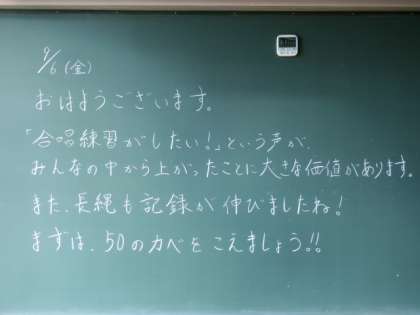 9/6(金)
おはようございます。
「合唱練習がしたい!」という声が、
みんなの中から上がったことに大きな価値があります。
また、長縄も記録が伸びましたね!
まずは、50のカベをこえましょう!!